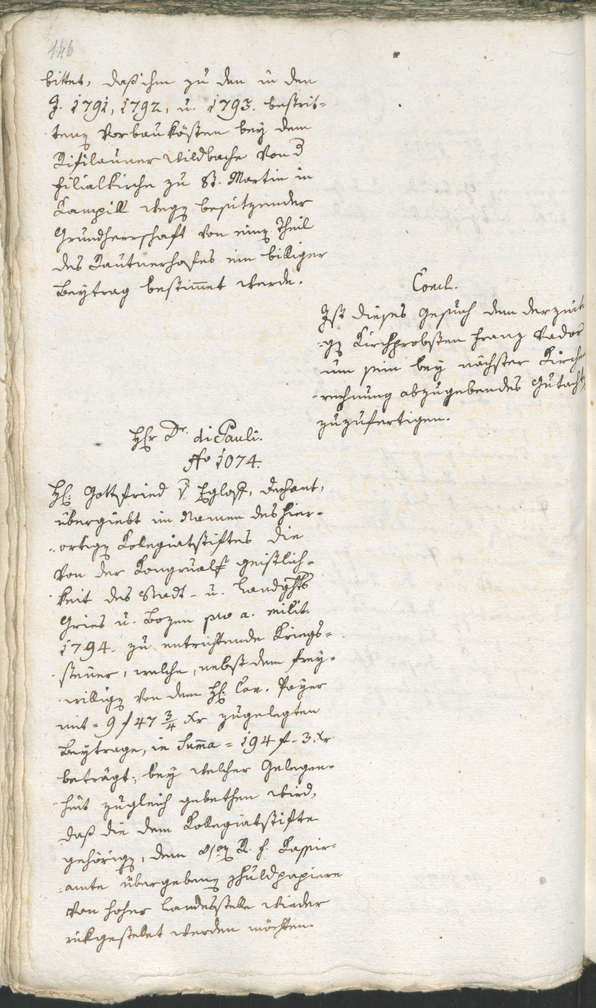 146
bittet, daß ihm zu den in den
J. 1791, 1792, u. 1793. bestrit-
tenen Vorbaukösten bey dem
Rifilauner Wildbache von d
Filialkirche zu St. Martin in
Kampill wegen besitzender
Grundherrschaft von einem Theil
des Rautnerhofes ein billiger
Beytrag bestimmet werde.
Concl.
Ist dieses Gesuch dem derzeit
gen Kirchprobsten Franz
um sein bey nächster Kirch
rechnung abzugebendes Gutach
zuzufertigen.
Hr Dr. di Pauli.
No 1074.
H. Gottfried v Egloff, Dechant,
übergiebt im Namen des hier-
ortigen Kolegiatstiftes die
von der Geistlich-
keit des Stadt- u. Landghts
Gries u. Bozen pro a. milit.
1794. zu entrichtende Kriegs-
steuer, welche, nebst dem frey-
willigen von dem H. Cav. Payer
mit = 9 f 47 3/4 Xr zugelegten
Beytrage, in Summa = 194 f - 3. Xr
beträgt, bey welcher Gelegen-
heit zugleich gebethen wird,
daß die dem Kollegiatstifte
gehörigen, dem K. K. Kassir-
amte übergebenen Schuldpapiere
von hoher Landesstelle wieder
rükgestellet werden möchten.